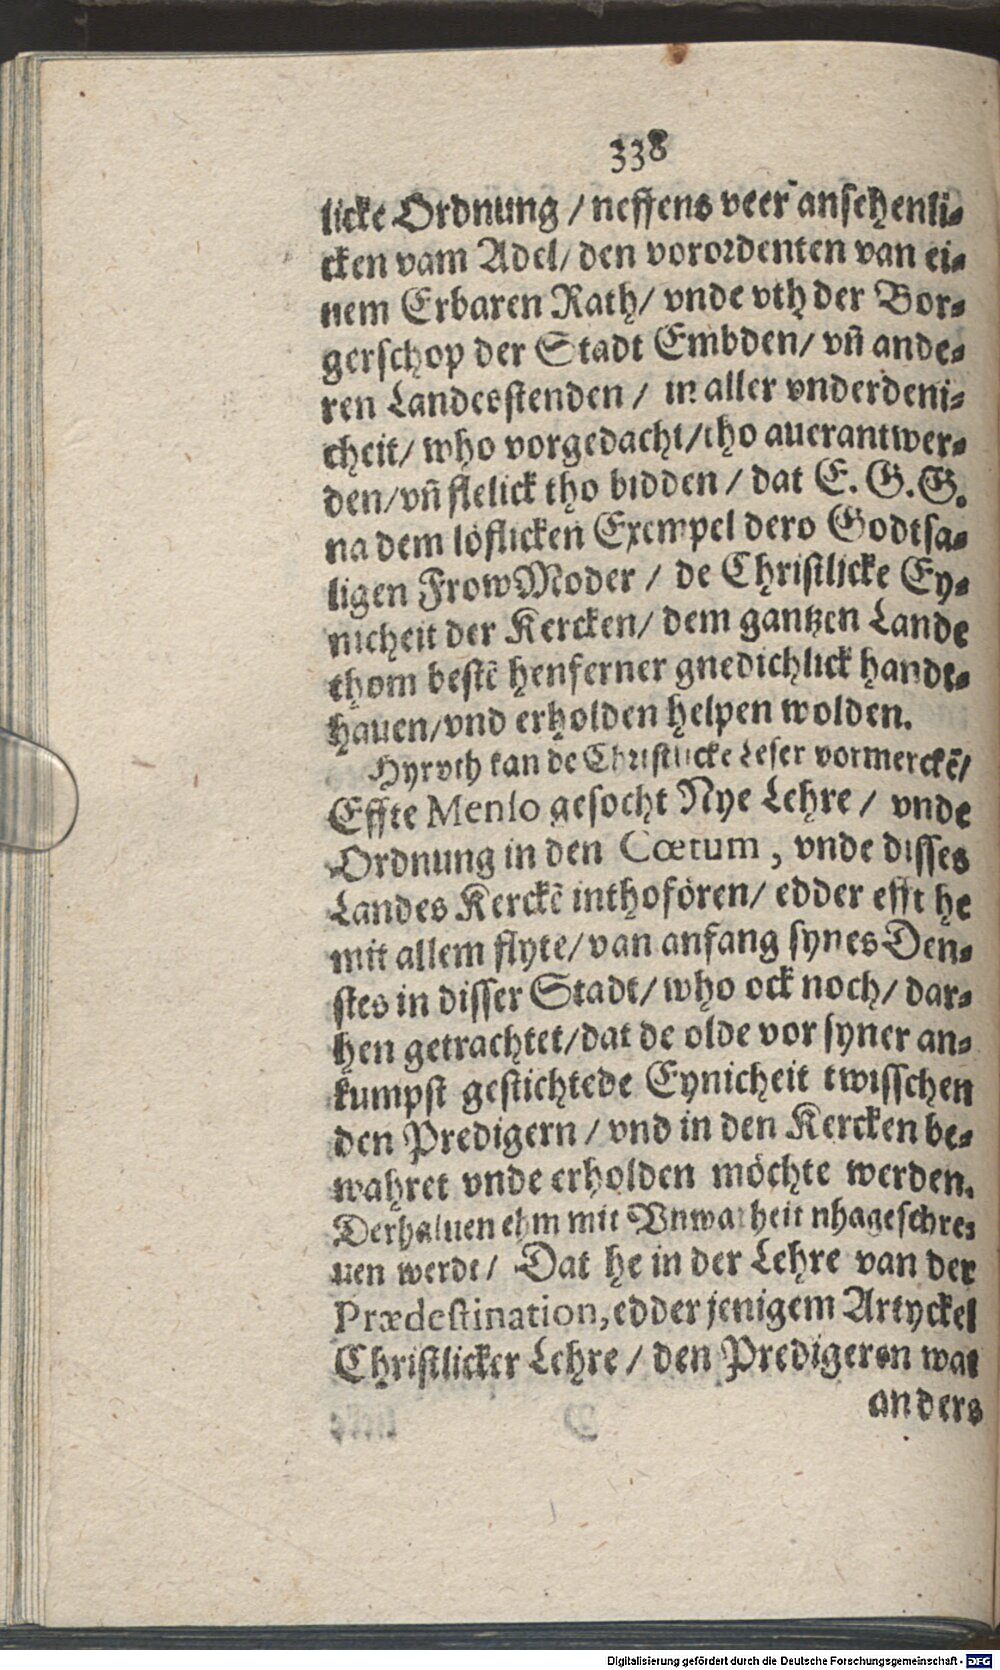 338
licke Ordnung / neffens veer ansehenli-
cken vam Adel / den vorordenten van ei-
nem Erbaren Rath / vnde vth der Bor-
gerschop der Stadt Embden / vn̄ ande-
ren Landesstenden / in aller vnderdeni-
cheit / who vorgedacht / tho auerantwer-
den / vn̄ flelick tho bidden / dat E. G. G.
na dem löflicken Exempel dero Godtsa-
ligen Frow Moder / de Christlicke Ey-
nicheit der Kercken / dem gantzen Lande
thom bestē henferner gnedichlick handt-
hauen / vnd erholden helpen wolden.
Hyrvth kan de Christlicke Leser vormerckē /
Effte Menso gesocht Nye Lehre / vnde
Ordnung in den Cœtum, vnde disses
Landes Kerckē inthofören / edder efft he
mit allem flyte / van anfang synes Den-
stes in disser Stadt / who ock noch / dar-
hen getrachtet / dat de olde vor syner an-
kumpst gestichtede Eynicheit twisschen
den Predigern / vnd in den Kercken be-
wahret vnde erholden möchte werden.
Derhaluen ehm mit Vnwarheit nhageschre-
uen werdt / Dat he in der Lehre van der
Prædestination, edder jenigem Artyckel
Christlicker Lehre / den Predigeren wat
anders
Digitalisierung gefördert durch die Deutsche Forschungsgemeinschaft - DFG